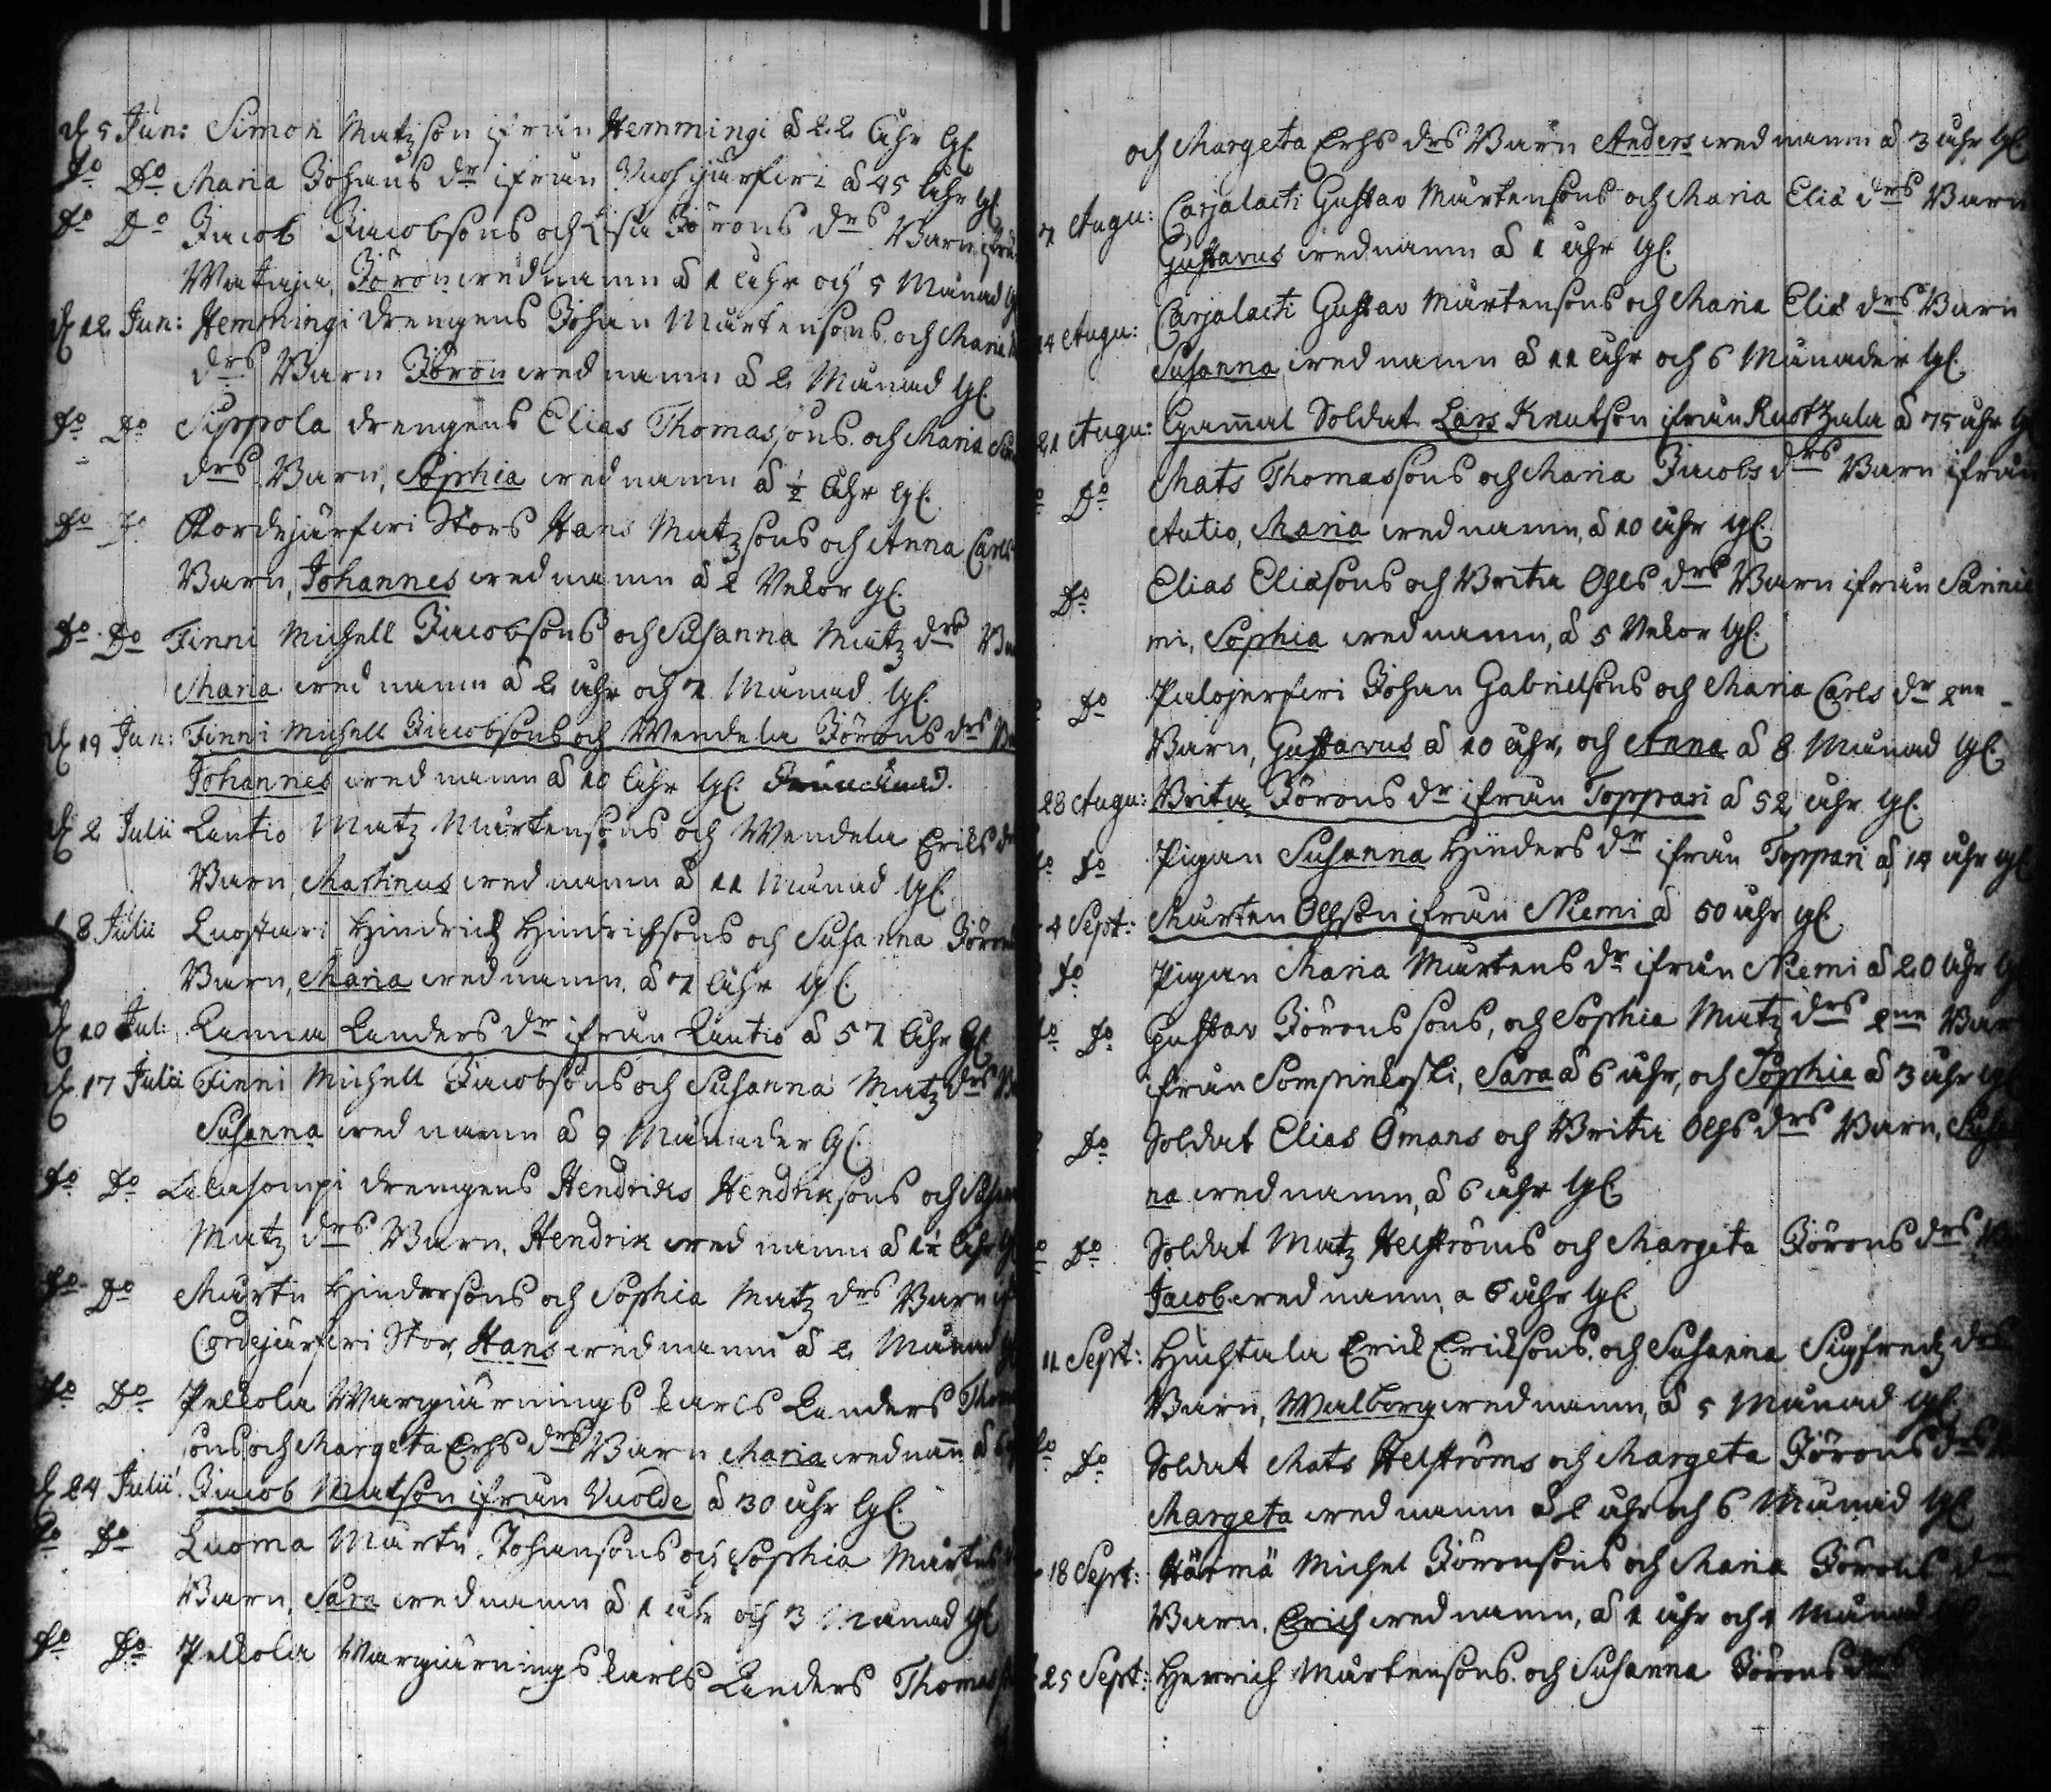 d. 5 Jun: Simon Matzson ifrån Hemmingi å 22 Åhr lgl.
Do Do Maria Johans dr ifrån å 45 Åhr lgl.
Do Do Jacob Jacobsons och Lisa Jörans drs Barn ifrån
Wataja, Jöran wed namn å 1 Åhr och 5 Månad lgl.
d. 12 Jun: Hemmingi drengens Johan Mårtensons och Maria
drs Barn Jöran wed namn å 2 Månad lgl.
Do Do Sippola drengens Elias Thomassons och Maria
drs Barn, Sophia wed namn å ½ Åhr lgl.
Do Do Kordejärferi Stors Hans Matzsons och Anna Carls
Barn, Johannes wed namn å 2 Vekor lgl.
Do Do Finni Michell Jacobsons och Susanna Matz drs
Maria wed namn å 2 åhr och 7 Månad lgl.
d. 19 Jun: Finni Michell Jacobsons och Wendela Jörans drs
Johannes wed namn å 10 Åhr lgl.
d. 2 Julii Lautio Matz Mårtensons och Wendela Erics
Barn Martinus wed namn å 11 Månad lgl.
8 Julii Luostari Hindrich Hindrichsons och Susanna
Barn, Maria wed namn å 7 Åhr lgl.
d. 10 Jul: Anna Anders dr ifrån Lautio å 57 Åhr lgl.
d. 17 Julii Finni Michell Jacobsons och Susanna Matz drs
Susanna wed namn å 9 Månader lgl.
Do Do drengens Hendriks Hendriksons och
Matz drs Barn, Hendrik wed namn å 1½ Åhr
Do Do Mårtn Hindersons och Sophia Matz drs Barn
Cordejärferi Stor, Hans wed namn å 2 Månad
Do Do Pekkola Wargiärnings karls Anders
sons och Margeta Erhs drs Barn Maria wed namn å
d. 24 Julii Jacob Matson ifrån Vuolde å 30 åhr lgl.
Do Do Luoma Mårtn Johansons och Sophia Mårtns
Barn, Sara wed namn å 1 åhr och 3 Månad lgl
Do Do Pekkola Wargiärnings karls Anders Thomas
och Margeta Erhs drs Barn Anders wed namn å 3 åhr lgl
7 Augu: Carjalacti Gustav Mårtensons och Maria Eliæ drs Barn
Gustavus wed namn å 1 åhr lgl.
14 Augu: Carjalacti Gustav Mårtensons och Maria Eliæ drs Barn
Susanna wed namn å 11 åhr och 6 Månader lgl.
21 Augu: Gammal Soldat Lars Knutson ifrån Kustzala å 75 åhr
Do Mats Thomassons och Maria Jacobs drs Barn ifrån
Autio, Maria wed namn, å 10 åhr lgl.
Do Elias Eliæsons och Brita Ohls drs Barn ifrån Sarinie
mi, Sophia wed namn, å 5 Vekor lgl.
Do Palojerferi Johan Gabrielsons och Maria Carls dr 2ne
Barn, Gustavus å 10 åhr, och Anna å 8 Månad lgl.
28 Augu: Brita Jörans dr ifrån Toppari å 52 åhr lgl.
Do Do Pigan Susanna Hinders dr ifrån Toppari å 14 åhr lgl
4 Sept: Mårten Olhson ifrån Niemi å 50 åhr lgl
Do Pigan Maria Mårtens dr ifrån Niemi å 20 Åhr
Do Do Gustav Jöranssons, och Sophia Matz drs 2ne Barn
ifrån Sompinkoski, Sara å 6 åhr, och Sophia å 3 åhr lgl
Do Soldat Elias Ömans och Brita Olhs drs Barn, Susan
na wed namn, å 6 åhr lgl.
Do Do Soldat Matz Helströms och Margeta Jörans drs
Jacob wed namn, a 6 åhr lgl
11 Sept: Huchtala Erick Ericksons och Susanna Sigfredz drs
Barn, Walborg wed namn, å 5 Månad lgl
Do Do Soldat Mats Helströms och Margeta Jörans drs
Margeta wed namn å 2 åhr och 6 Månad lgl
18 Sept: Härmä Michel Jöransons och Maria Jörans
Barn, Erich wed namn, å 1 åhr och 1 Månad
25 Sept: Herrich Mårtensons och Susanna Jörans drs